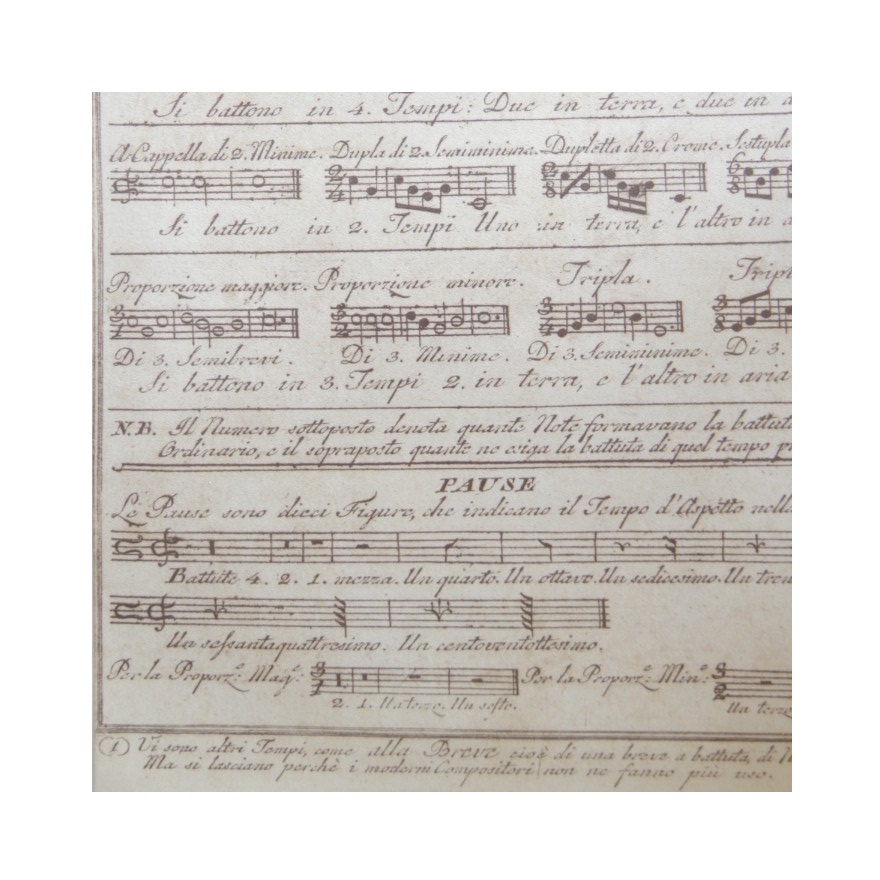 Si battono in 4. Tempi: Due in terra, e due in a
A Cappella di 2. Minime. Dupla di 2 Semiminime. Dupletta di 2. Crome. Sestupla
2 4 2 8 6 8
Si battono in 2. Tempi Uno in terra, e l'altro in a
Proporzione maggiore. Proporzione minore. Tripla. Tripl
3 1 3 2 3 4 3 8
Di 3. Semibrevi. Di 3. Minime. Di 3. Semiminime. Di 3.
Si battono in 3. Tempi 2. in terra, e l'altro in aria
N.B. Il Numero sottoposto denota quante Note formavano la battuta
Ordinario, e il sopraposto quante ne esiga la battuta di quel tempo pr
PAUSE
Le Pause sono dieci Figure, che indicano il Tempo d'Aspetto nell
Battute 4. 2. 1. mezza. Un quarto. Un ottavo. Un sedicesimo. Un tren
Un sessantaquattresimo. Un centoventottesimo.
Per la Proporz.e Mag.e 3 1 Per la Proporz.e Min.e 3 2
2. 1. Un terzo. Un sesto. Un terzo
(1) Vi sono altri Tempi, come alla Breve cioè di una breve a battuta, di
Ma si lasciano perchè i moderni Compositori non ne fanno più uso.